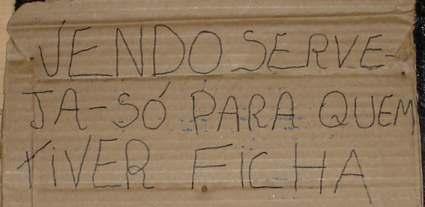 VENDO SERVE-
JA-SÓ PARA QUEM
TIVER FICHA